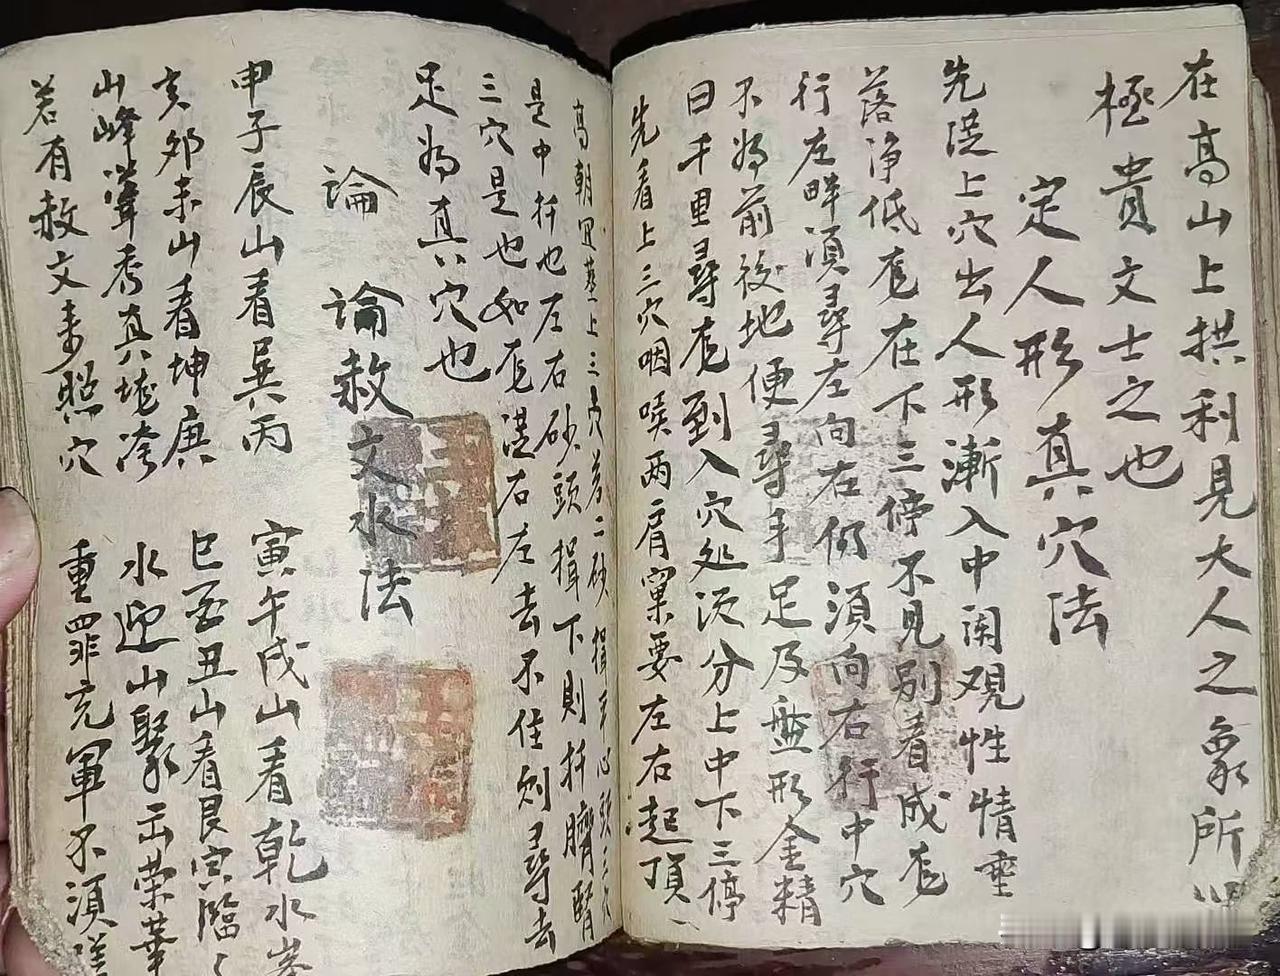 在高山上拱利見大人之象所以
極貴文士之也
定人形真穴法
先從上穴出人形漸入中闲观性情垂
落淨低虎在下三停不見别看成虎
行左畔須尋左向右仍須向右行中穴
不為前後地便尋手足及盤形金精
曰千里尋虎到入穴处须分上中下三停
先看上三穴咽喉两肩窠要左右起頂
高朝宜葬上三穴若二砂揖
是中扦也左右砂頭揖下則扦臍腎
三穴是也如虎湛右左去不住则尋去
足為真穴也
論 論赦文水法
申子辰山看巽丙 寅午戌山看乾水
亥卯未山看坤庚 巳酉丑山看艮寅臨
山峰聳秀真堪誇 水迎山聚出荣華
若有赦文来照穴 重罪充軍不須